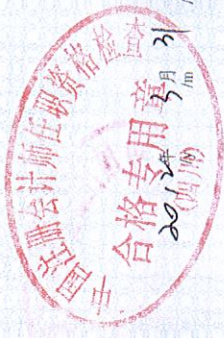 中国注册会计师任职资格检查
合格专用章
2012年3月31日
(四川)